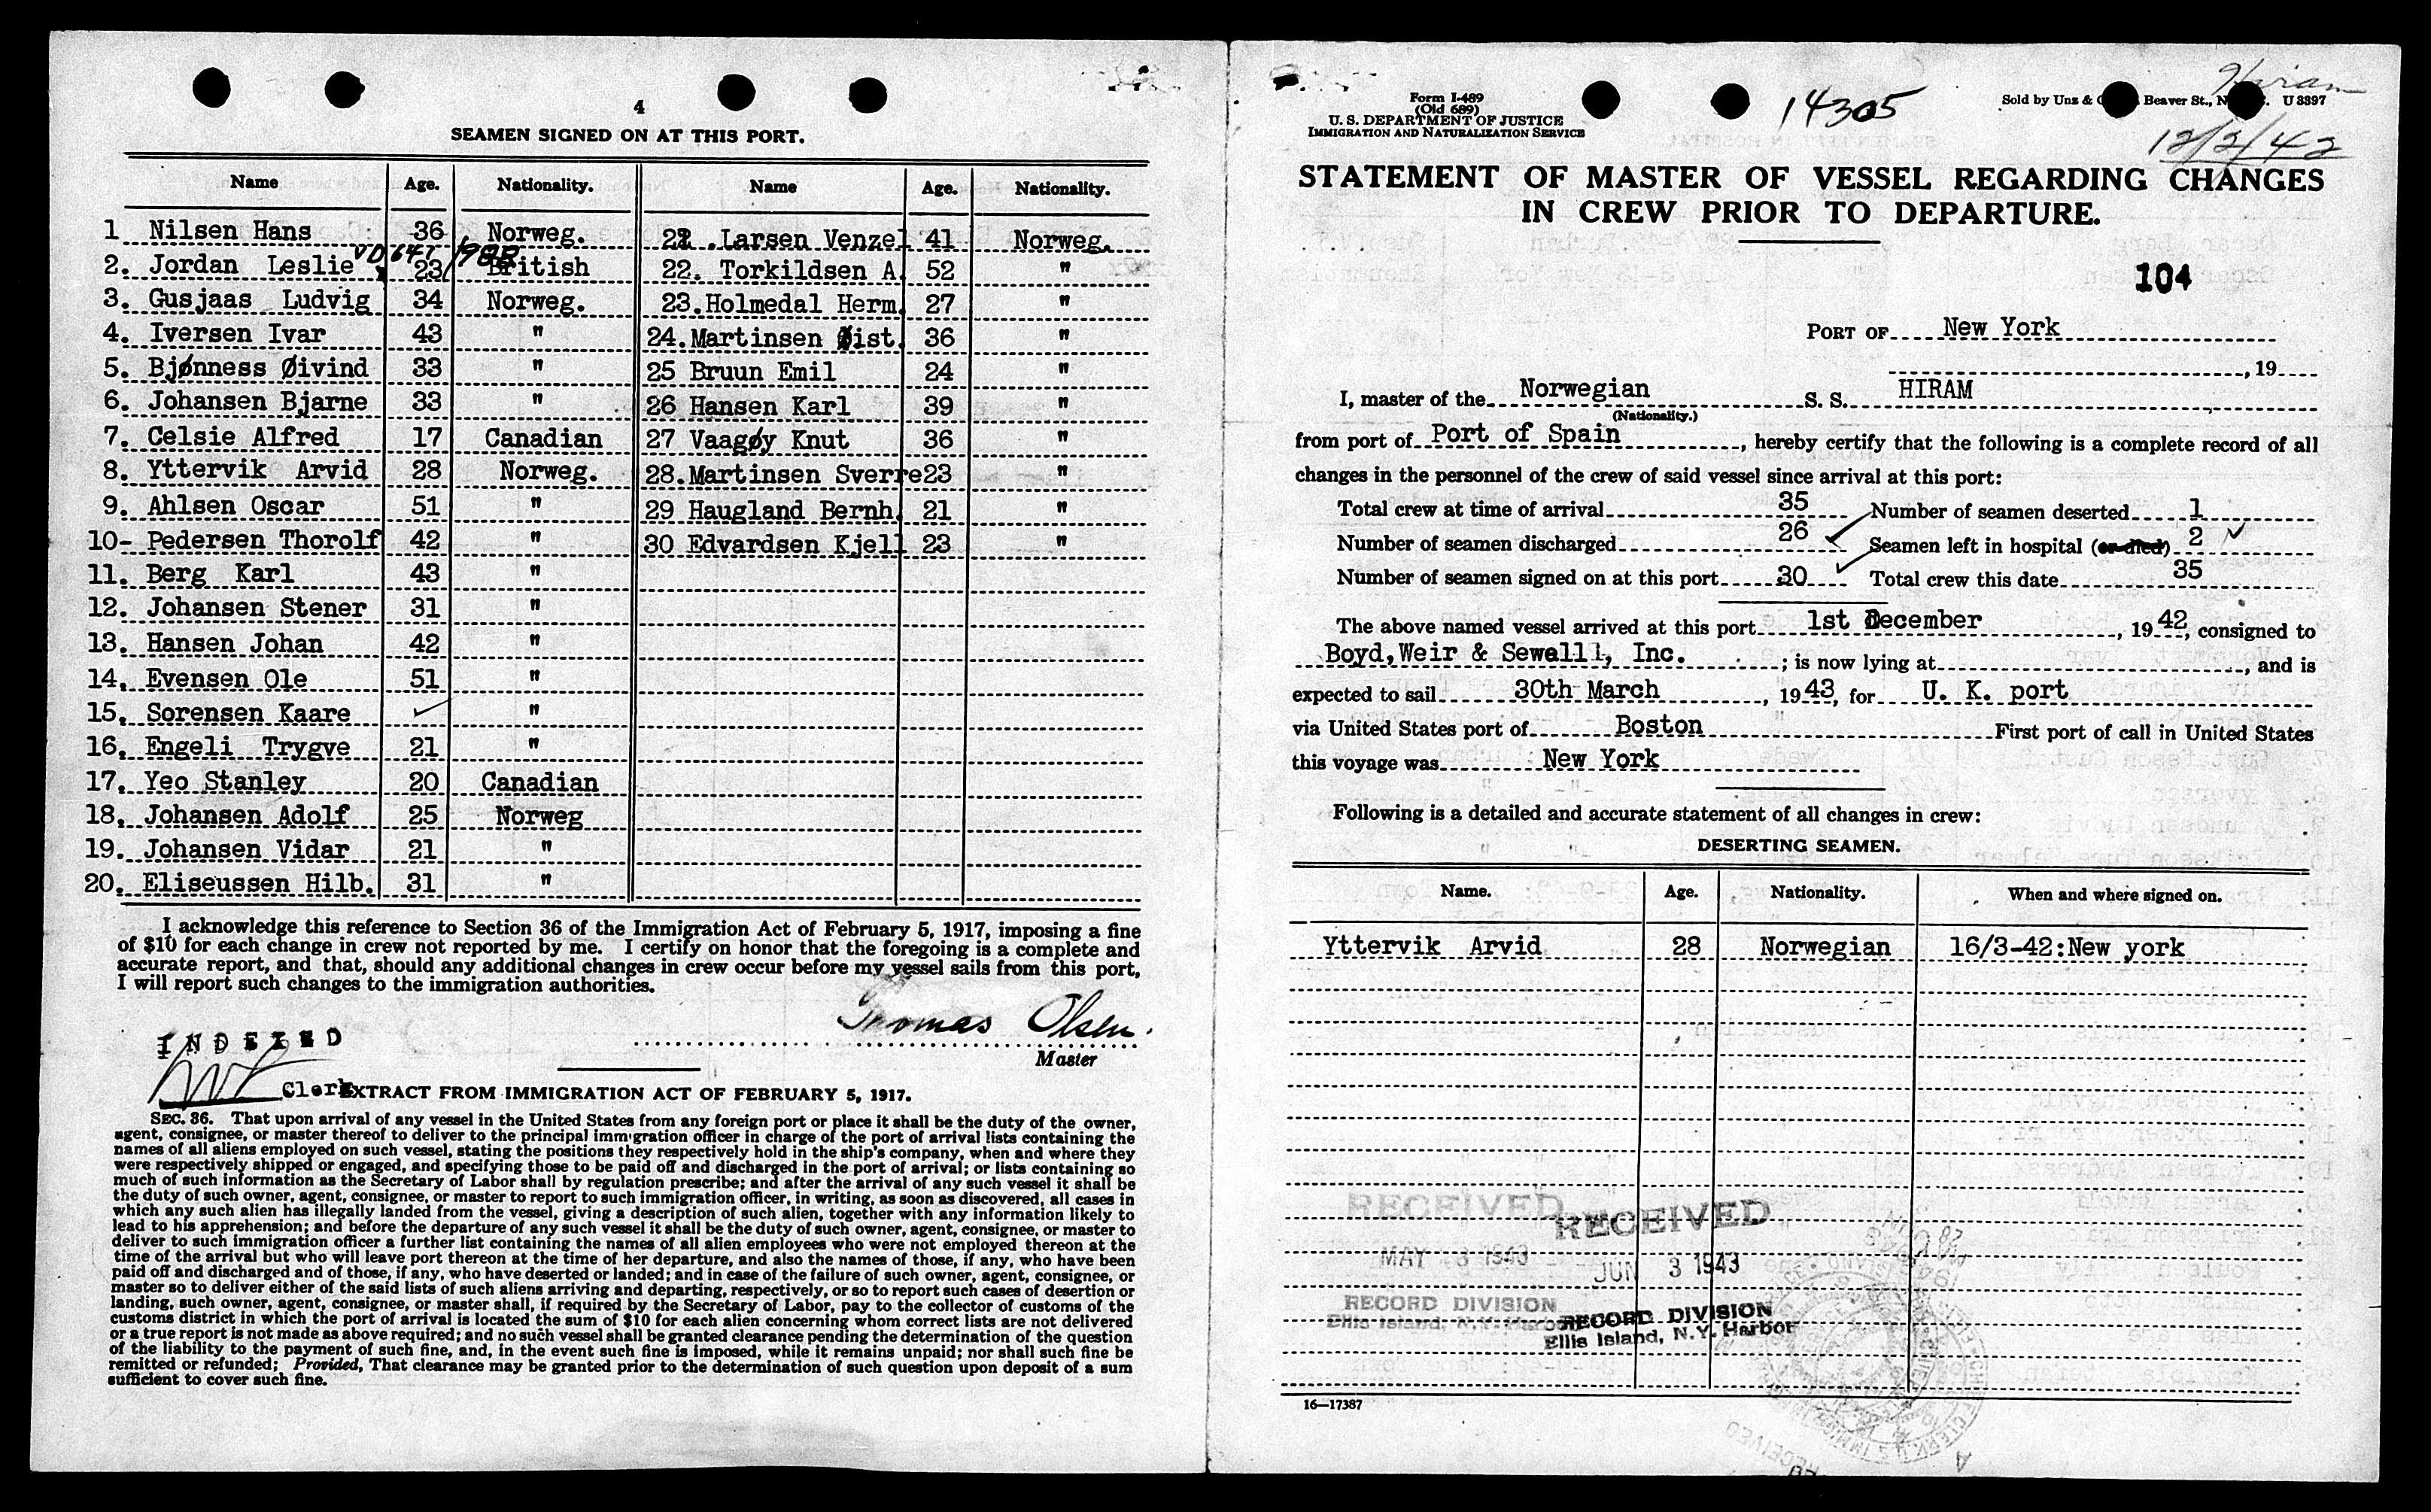 4
SEAMEN SIGNED ON AT THIS PORT.
Name Age. Nationality. Name Age. Nationality.
1 Nilsen Hans 36 Norweg. 21 .Larsen Venzel 41 Norweg.
2. Jordan Leslie 23 British 22. Torkildsen A. 52 "
3. Gusjaas Ludvig 34 Norweg. 23.Holmedal Herm. 27 "
4. Iversen Ivar 43 " 24.Martinsen Øist. 36 "
5. Bjønness Øivind 33 " 25 Bruun Emil 24 "
6. Johansen Bjarne 33 " 26 Hansen Karl 39 "
7. Celsie Alfred 17 Canadian 27 Vaagøy Knut 36 "
8. Yttervik Arvid 28 Norweg. 28.Martinsen Sverre23 "
9. Ahlsen Oscar 51 " 29 Haugland Bernh. 21 "
10- Pedersen Thorolf 42 " 30 Edvardsen Kjell 23 "
11. Berg Karl 43 "
12. Johansen Stener 31 "
13. Hansen Johan 42 "
14. Evensen Ole 51 "
15. Sorensen Kaare "
16. Engeli Trygve 21 "
17. Yeo Stanley 20 Canadian
18. Johansen Adolf 25 Norweg
19. Johansen Vidar 21 "
20. Eliseussen Hilb. 31 "
I acknowledge this reference to Section 36 of the Immigration Act of February 5, 1917, imposing a fine
of $10 for each change in crew not reported by me. I certify on honor that the foregoing is a complete and
accurate report, and that, should any additional changes in crew occur before my vessel sails from this port,
I will report such changes to the immigration authorities.
Thomas Olsen.
Master
INDEXED
Clerk
EXTRACT FROM IMMIGRATION ACT OF FEBRUARY 5, 1917.
SEC. 36. That upon arrival of any vessel in the United States from any foreign port or place it shall be the duty of the owner,
agent, consignee, or master thereof to deliver to the principal immigration officer in charge of the port of arrival lists containing the
names of all aliens employed on such vessel, stating the positions they respectively hold in the ship's company, when and where they
were respectively shipped or engaged, and specifying those to be paid off and discharged in the port of arrival; or lists containing so
much of such information as the Secretary of Labor shall by regulation prescribe; and after the arrival of any such vessel it shall be
the duty of such owner, agent, consignee, or master to report to such immigration officer, in writing, as soon as discovered, all cases in
which any such alien has illegally landed from the vessel, giving a description of such alien, together with any information likely to
lead to his apprehension; and before the departure of any such vessel it shall be the duty of such owner, agent, consignee, or master to
deliver to such immigration officer a further list containing the names of all alien employees who were not employed thereon at the
time of the arrival but who will leave port thereon at the time of her departure, and also the names of those, if any, who have been
paid off and discharged and of those, if any, who have deserted or landed; and in case of the failure of such owner, agent, consignee, or
master so to deliver either of the said lists of such aliens arriving and departing, respectively, or so to report such cases of desertion or
landing, such owner, agent, consignee, or master shall, if required by the Secretary of Labor, pay to the collector of customs of the
customs district in which the port of arrival is located the sum of $10 for each alien concerning whom correct lists are not delivered
or a true report is not made as above required; and no such vessel shall be granted clearance pending the determination of the question
of the liability to the payment of such fine, and, in the event such fine is imposed, while it remains unpaid; nor shall such fine be
remitted or refunded; Provided, That clearance may be granted prior to the determination of such question upon deposit of a sum
sufficient to cover such fine.
Form I-489
(Old 689)
U. S. DEPARTMENT OF JUSTICE
IMMIGRATION AND NATURALIZATION SERVICE
14305
Hiram
Sold by Unz & Beaver St., N U 3397
12/2/42
STATEMENT OF MASTER OF VESSEL REGARDING CHANGES
IN CREW PRIOR TO DEPARTURE.
104
PORT OF New York
, 19
I, master of the Norwegian S. S. HIRAM
(Nationality.)
from port of Port of Spain, hereby certify that the following is a complete record of all
changes in the personnel of the crew of said vessel since arrival at this port:
Total crew at time of arrival 35 Number of seamen deserted 1
Number of seamen discharged 26 Seamen left in hospital (or died) 2
Number of seamen signed on at this port 30 Total crew this date 35
The above named vessel arrived at this port 1st December, 1942, consigned to
Boyd,Weir & Sewelll, Inc. ; is now lying at , and is
expected to sail 30th March, 1943, for U. K. port
via United States port of Boston First port of call in United States
this voyage was New York
Following is a detailed and accurate statement of all changes in crew:
DESERTING SEAMEN.
Name. Age. Nationality. When and where signed on.
Yttervik Arvid 28 Norwegian 16/3-42:New york
RECEIVED
MAY 3 1943
RECORD DIVISION
Ellis Island, N.Y. Harbor
RECEIVED
JUN 3 1943
RECORD DIVISION
Ellis Island, N.Y. Harbor
16—17387